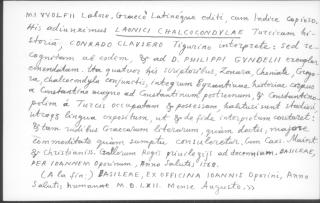 M. VVOLFII Labore, Graece Latineque editi, cum Indice copioso.
His adiunximus LAONICI CHALCOCONDYLAE Turcicam hi-
storia, CONRADO CLAVSERO Tigurino interprete: sed re-
cognitam ab eodem, & ad D. PHILIPPI GVNDELII exemplar
emendatam. Ita quatuor his scriptoribus, Zonara, Choniate, Grego-
ra, chalcocondyla conjunctis, integrum Byzantinae historiae corpus
a Constantino magno ad Constantinum postremum, & Constantino-
polim a Turcis occupatam & possessam, habituri sunt studiosi
utraque lingua expositum, ut & de fide interpretum constaret:
& tam rudibus Graecarum literarum, quàm doctis, majore
commoditate quàm sumptu consuleretur. Cum Caes. Maiest.
& christianiss. Gallorum Regis privilegijs ad decennium. BASILEAE,
PER IOANNEM Oporinum, Anno Salutis
(A la fin:) BASILEAE, EX OFFICINA IOANNIS Oporini, Anno
Salutis humanae M.D.LXII. Mense Augusto.»